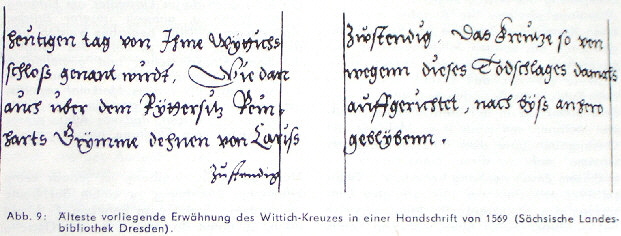 heutigen tag von Ihme Wytichs
schloß genant wirdt, Wie dan
auch uber dem Ryttersitz Rein,
harts Grymme dehnen von Cariss
zustendig
zustendig. Das Kreutze so von
wegenn dieses Todschlages damals
auffgerichtet, nach byss anhero
geblybenn.
Abb. 9: Älteste vorliegende Erwähnung des Wittich-Kreuzes in einer Handschrift von 1569 (Sächsische Landes-
bibliothek Dresden).